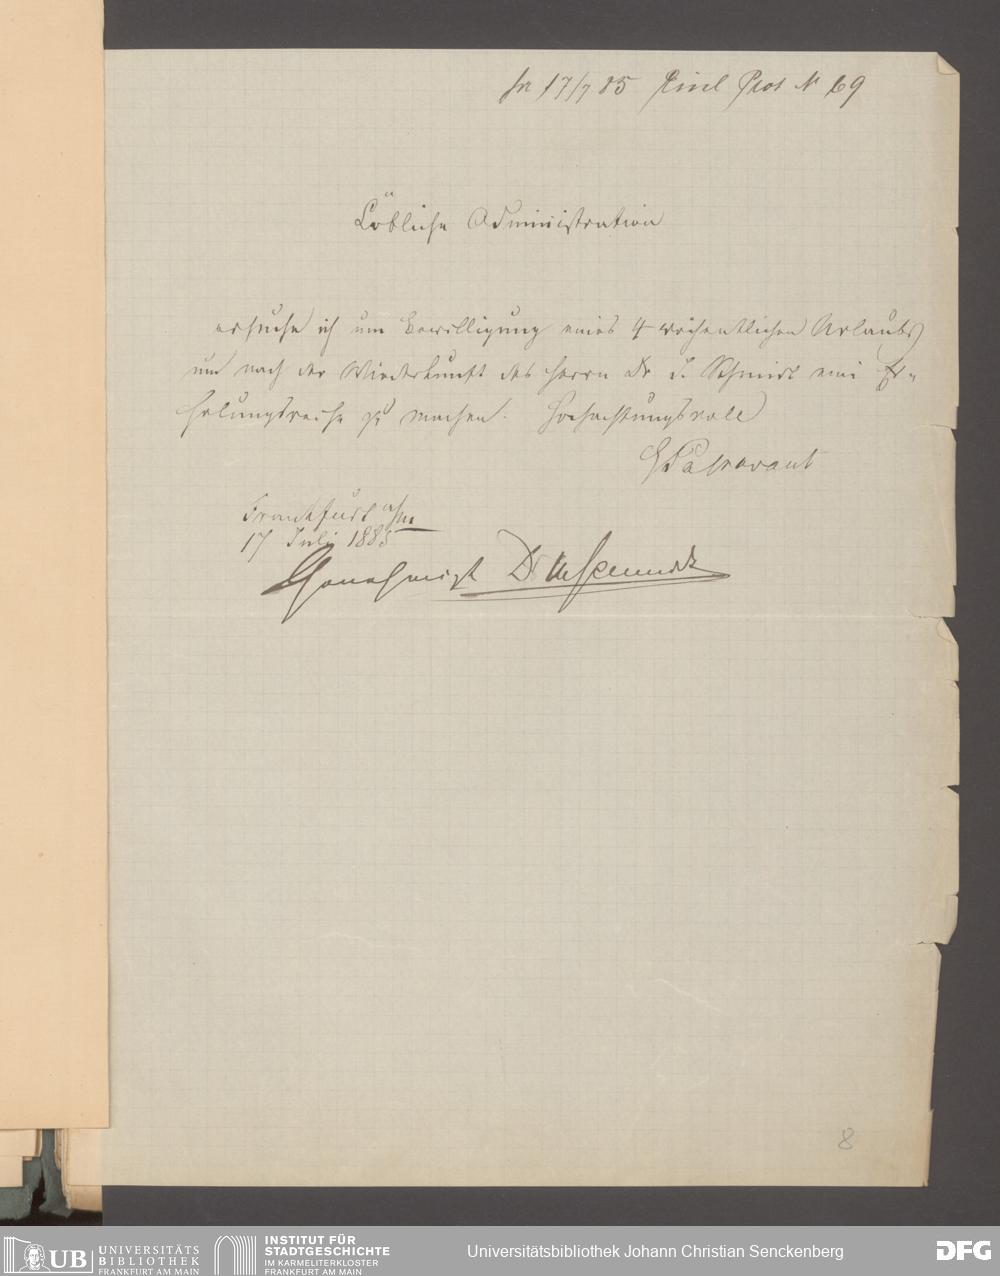 pr 17/7 85 Einl Prot N 69
Löbliche Administration
ersuche ich um Bewilligung eines 4 wöchentlichen Urlaubs
um nach der Wiederkunft des Herrn Dr. J. Schmidt eine Er-
holungsreise zu machen. Hochachtungsvoll
G Passavant
Frankfurt a/m
17 Juli 1885
Genehmigt Dr
8
UB UNIVERSITÄTS
BIBLIOTHEK
FRANKFURT AM MAIN
INSTITUT FÜR
STADTGESCHICHTE
IM KARMELITERKLOSTER
FRANKFURT AM MAIN
Universitätsbibliothek Johann Christian Senckenberg
DFG